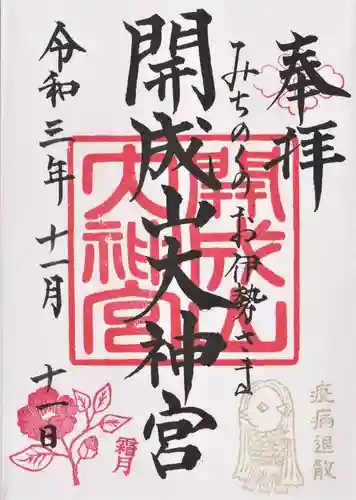 奉拝
みちのくのお伊勢さま
開成山大神宮
令和三年十一月十一日
開成山
大神宮
霜月
疫病退散